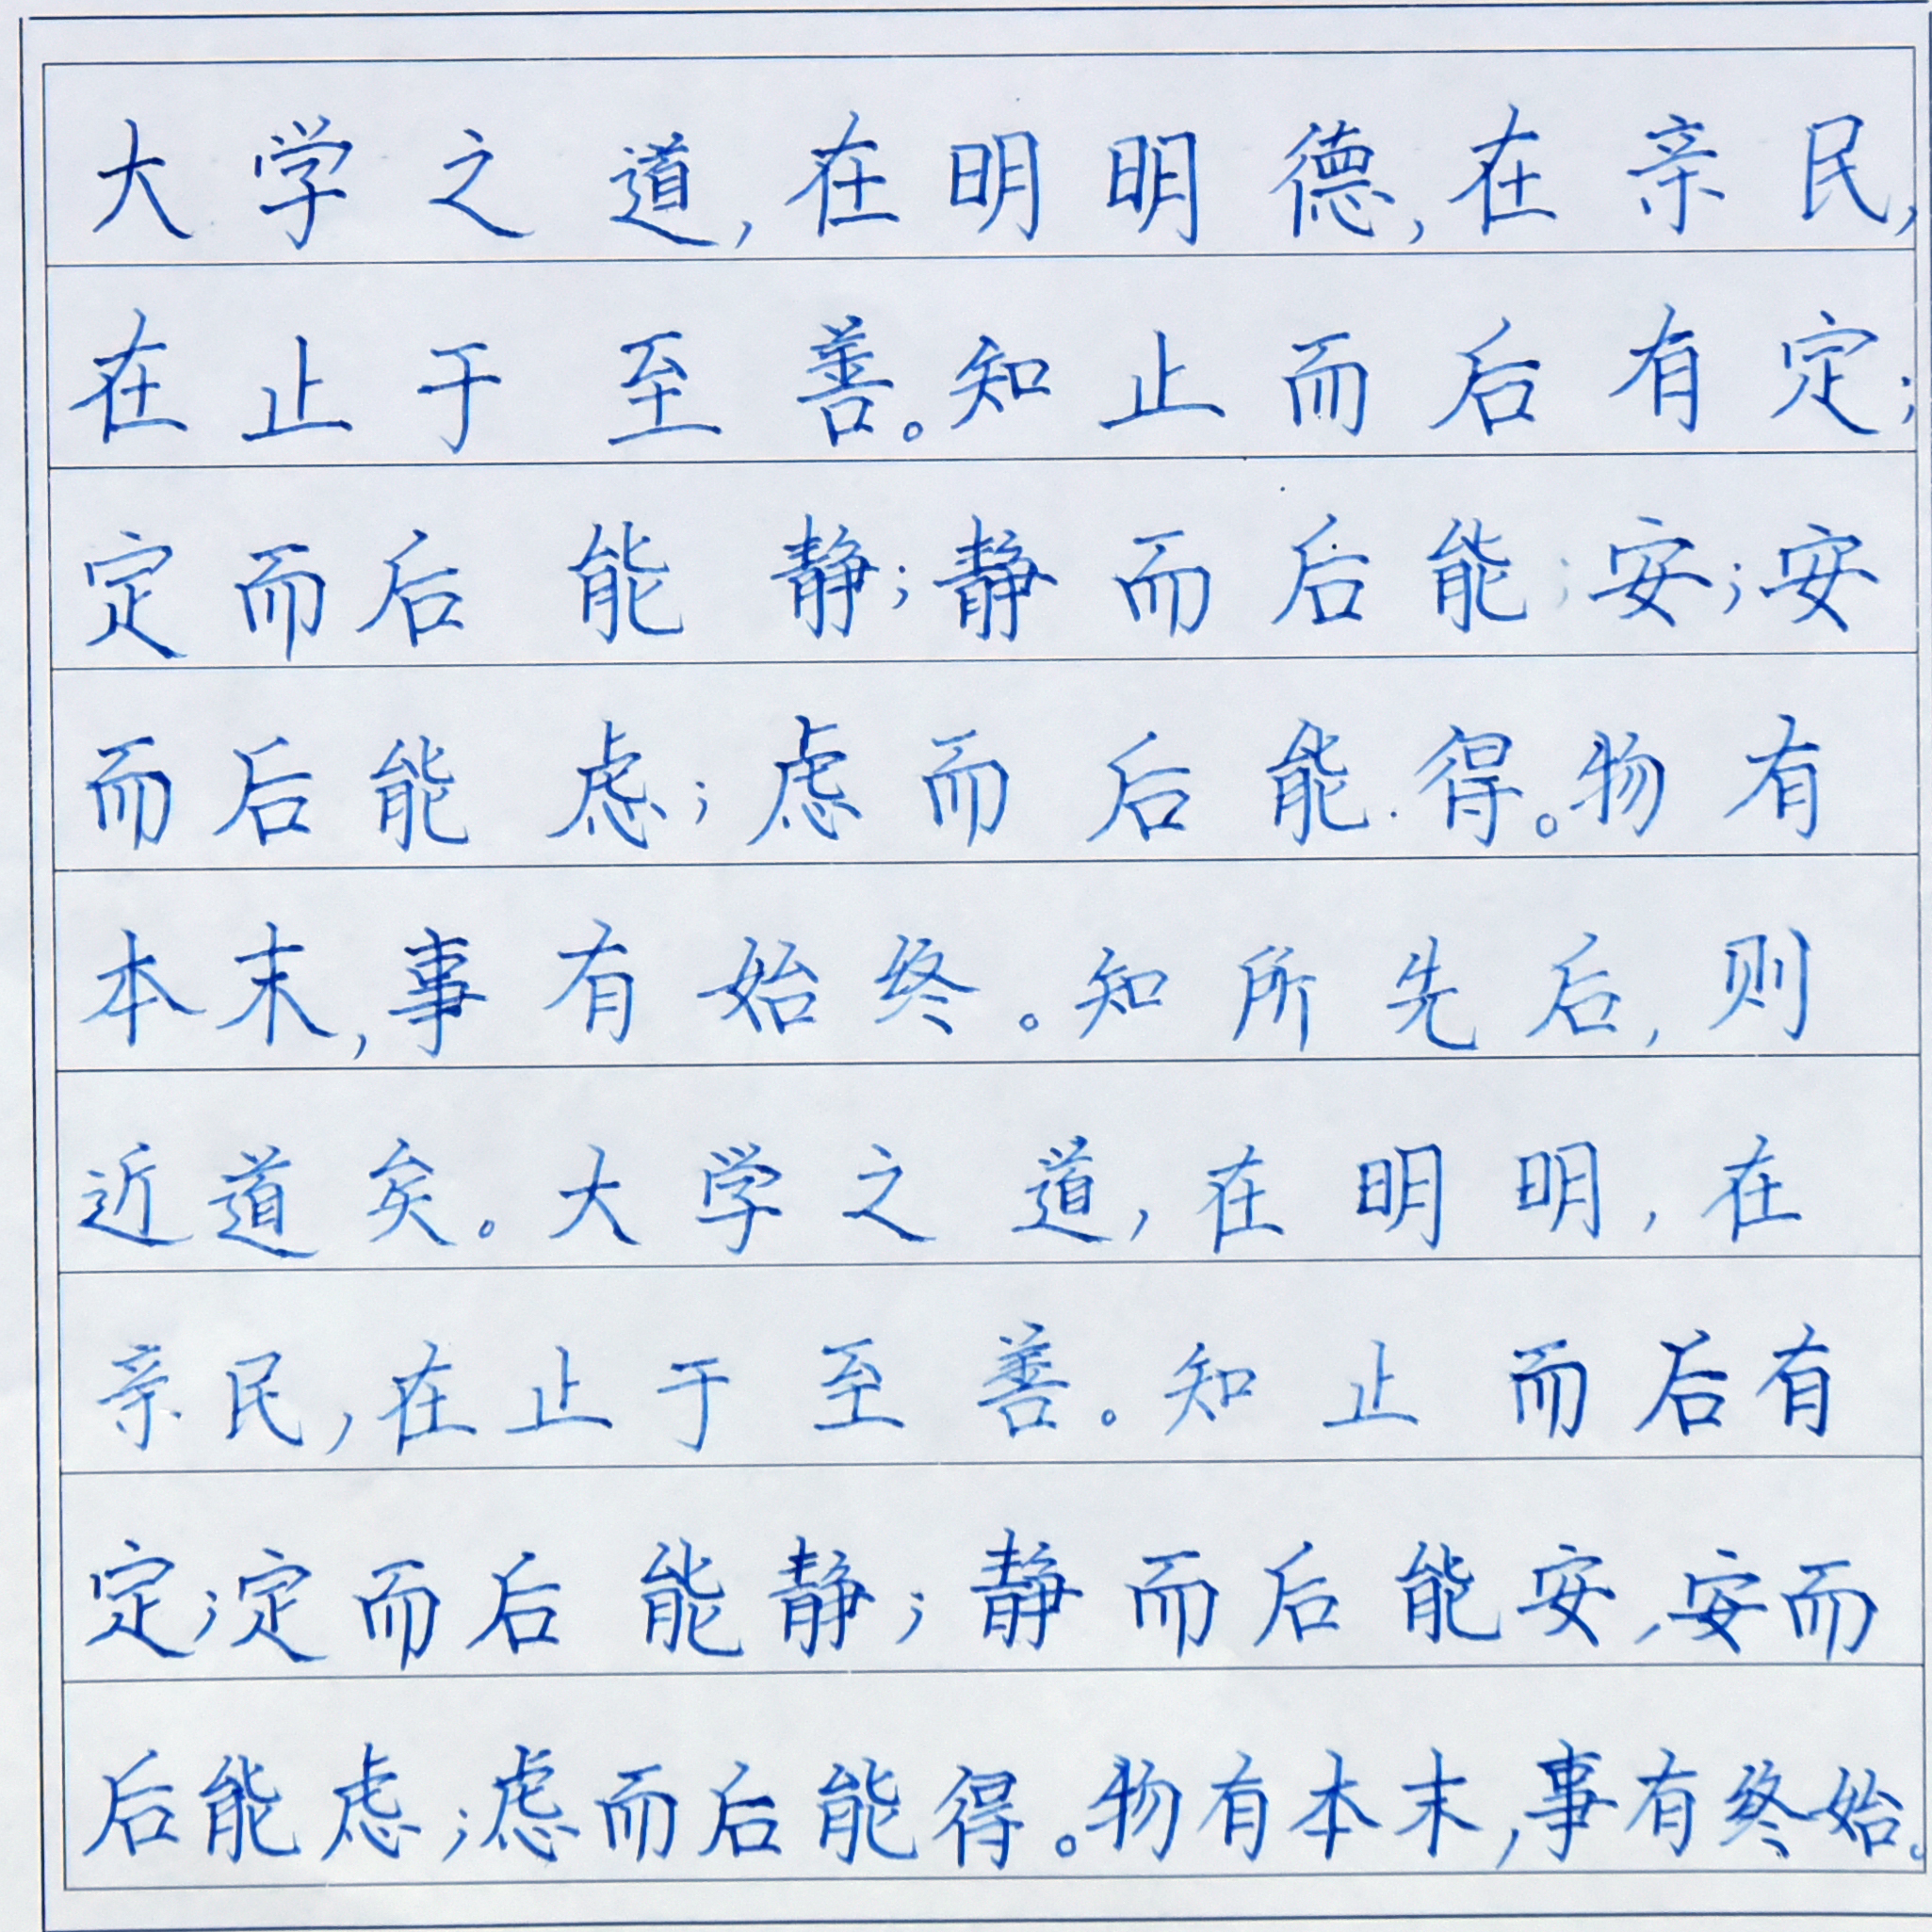 大学之道,在明明德,在亲民,
在止于至善。知止而后有定;
定而后能静;静而后能;安;安
而后能虑;虑而后能.得。物有
本末,事有始终。知所先后,则
近道矣。大学之道,在明明,在
亲民,在止于至善。知止而后有
定;定而后能静;静而后能安,安而
后能虑;虑而后能得。物有本末,事有终始。